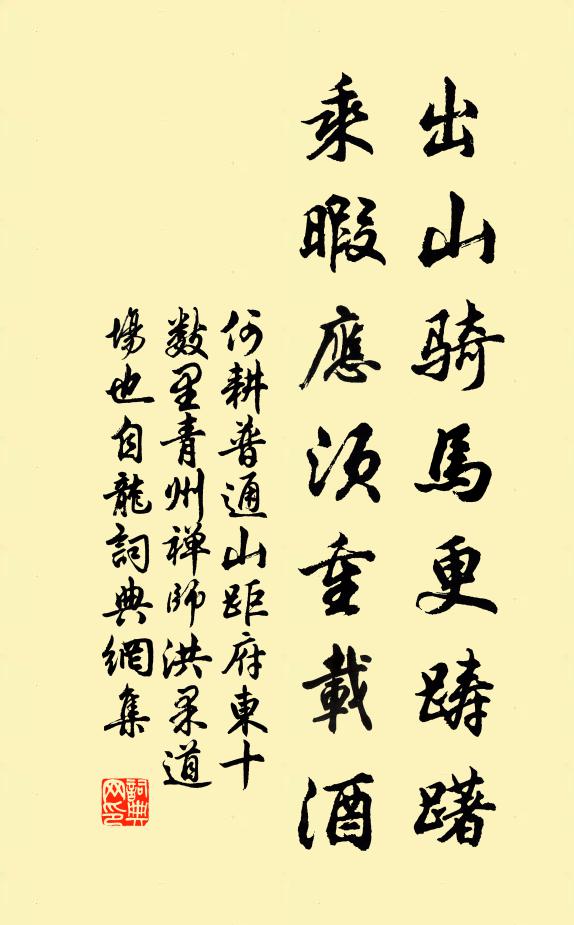 出山騎馬更踌躇
乘暇應須重載酒
何耕普通山距府東十
數里青州禅師洪果道
場也自龍詞典網集
詞典网印